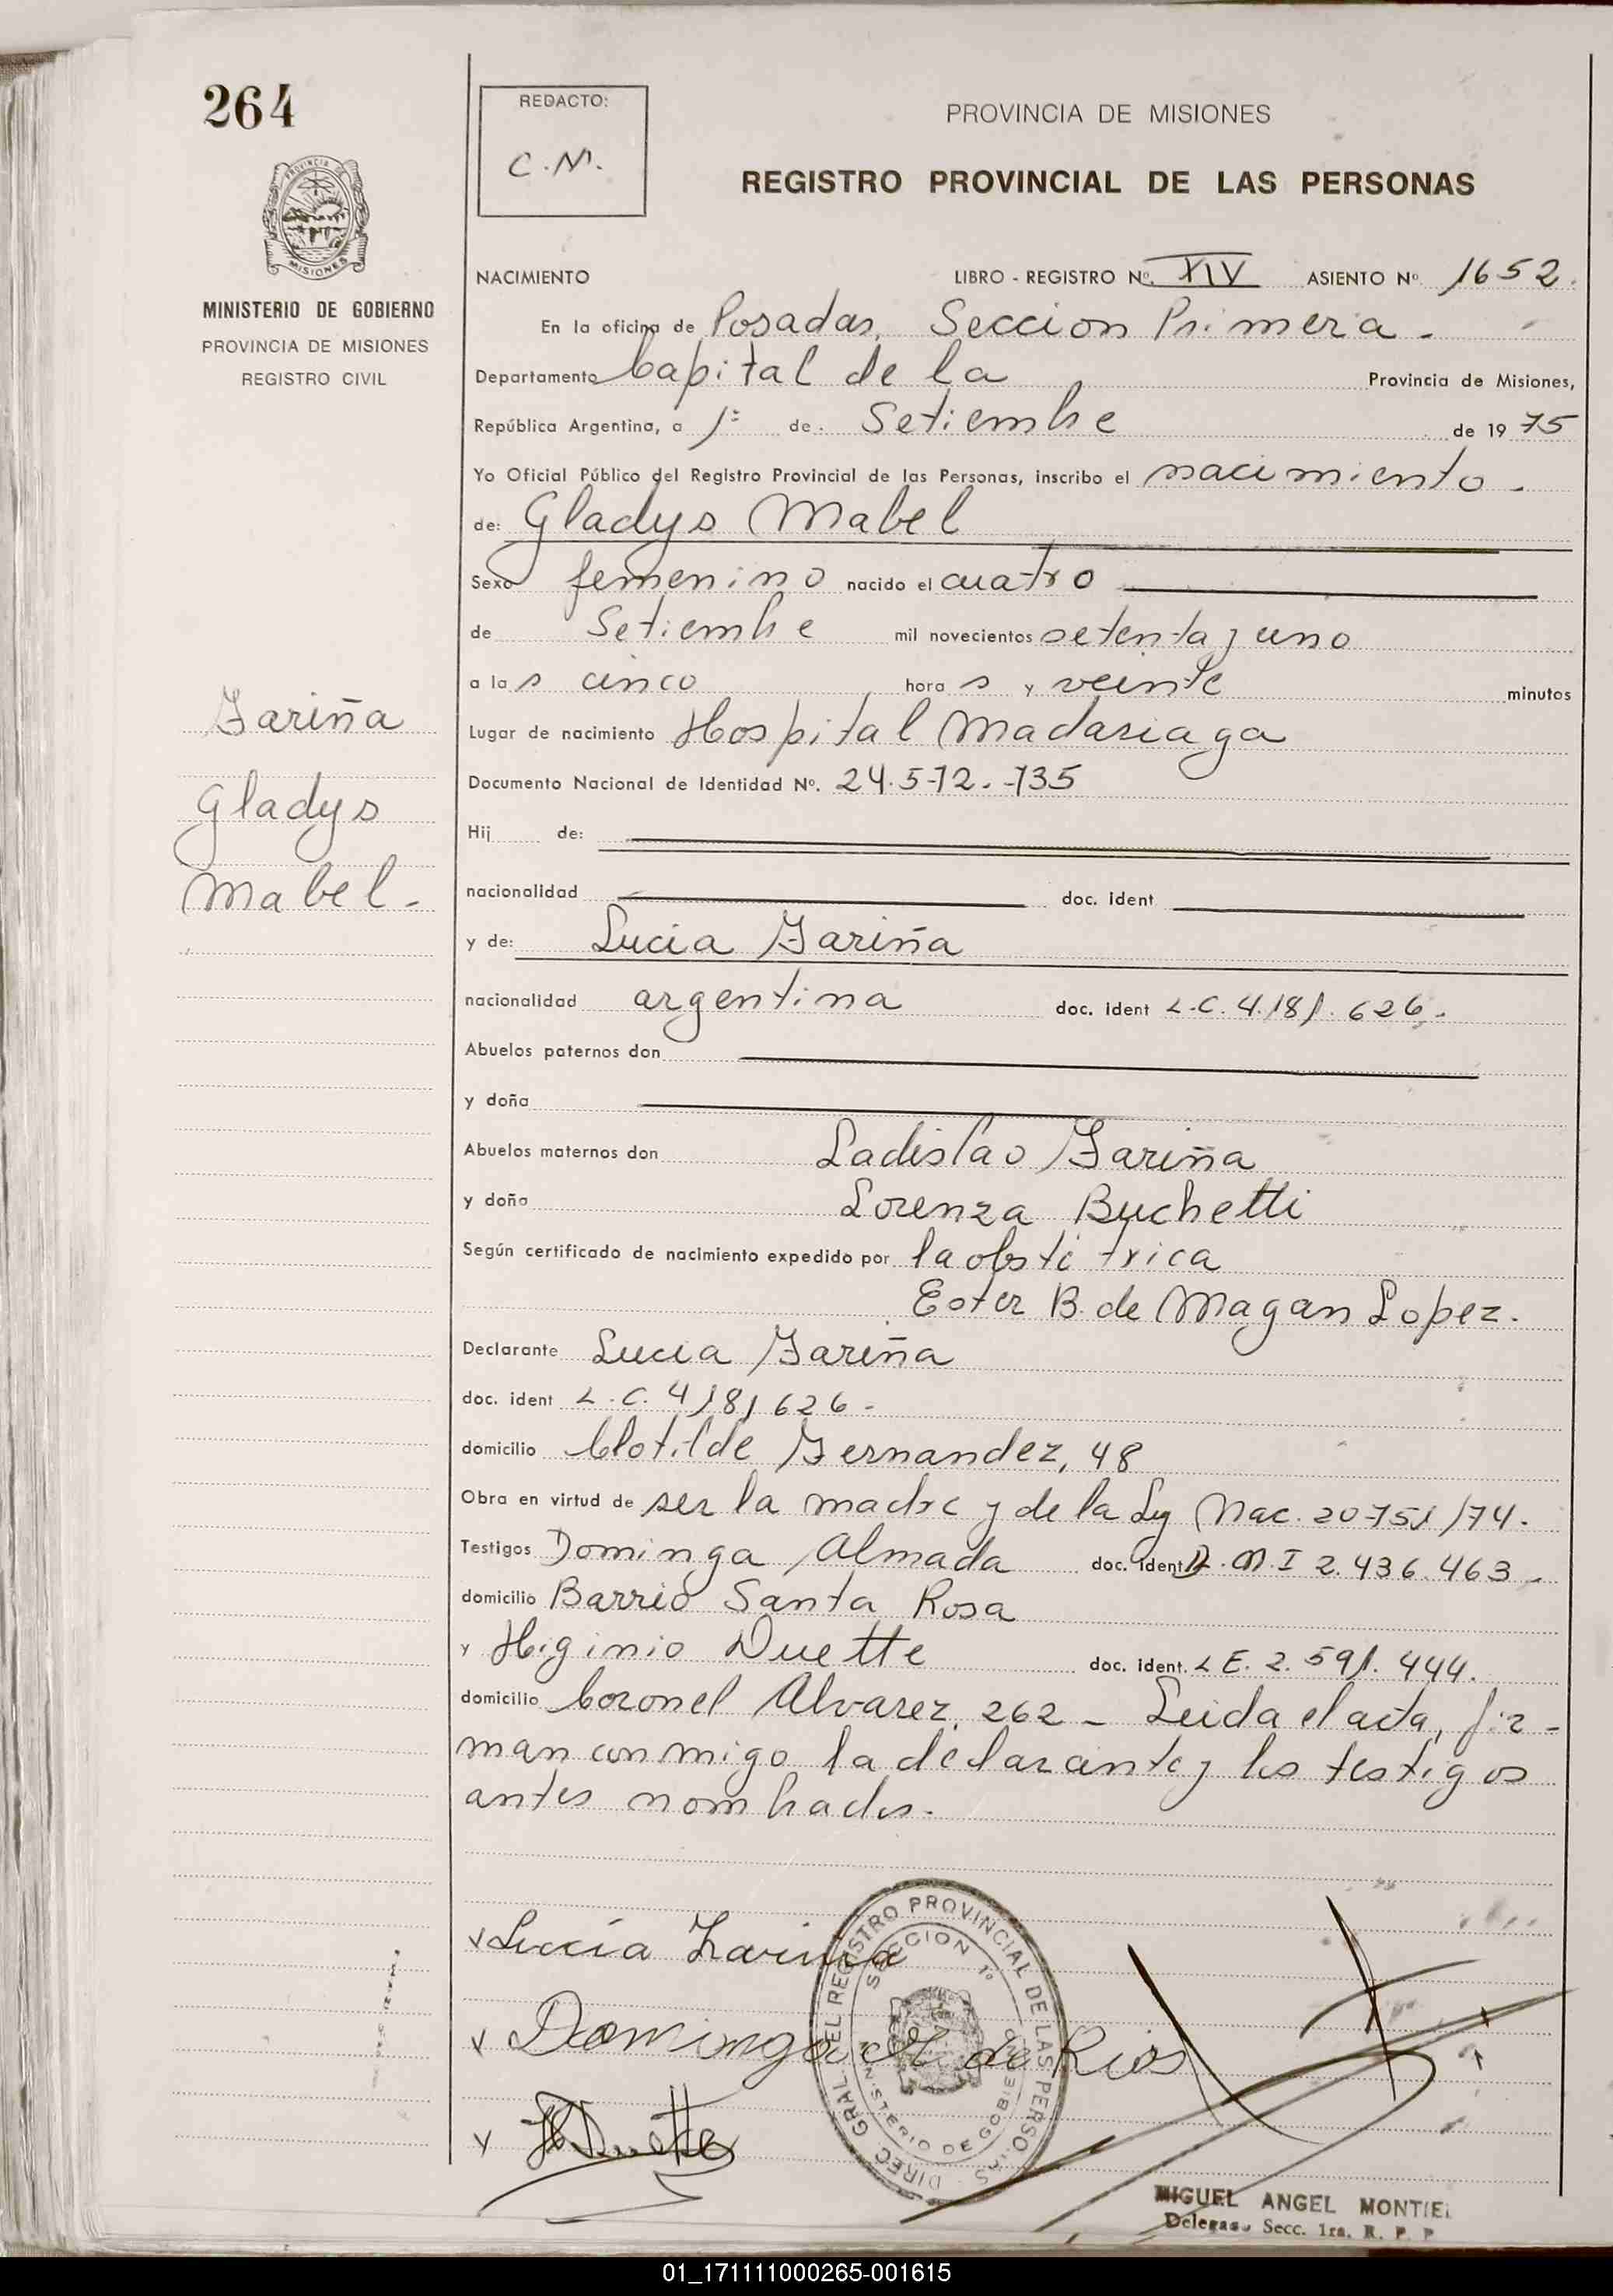 264
REDACTO:
C.M.
PROVINCIA DE MISIONES
REGISTRO PROVINCIAL DE LAS PERSONAS
MISIONES
MINISTERIO DE GOBIERNO
PROVINCIA DE MISIONES
REGISTRO CIVIL
NACIMIENTO LIBRO - REGISTRO Nº. XIV ASIENTO Nº 1652.
En la oficina de Posadas, Seccion Primera.
Departamento Capital de la Provincia de Misiones,
República Argentina, a 1º de Setiembre de 1975
Yo Oficial Público del Registro Provincial de las Personas, inscribo el nacimiento.
de: Gladys Mabel
Sexo femenino nacido el cuatro
de Setiembre mil novecientos setenta y uno
a las cinco horas y veinte minutos
Lugar de nacimiento Hospital Madariaga
Documento Nacional de Identidad Nº. 24.572.735
Hij de:
nacionalidad doc. ident
y de: Lucia Fariña
nacionalidad argentina doc. ident L.C. 4.181.626.
Abuelos paternos don
y doña
Abuelos maternos don Ladislao Fariña
y doña Lorenza Buchetti
Según certificado de nacimiento expedido por la obstétrica
Ester B. de Magan Lopez.
Declarante Lucia Fariña
doc. ident L.C. 4181626.
domicilio Clotilde Fernandez, 48
Obra en virtud de ser la madre y de la Ley Nac. 20751/74.
Testigos Dominga Almada doc. ident D.M.I 2.436.463.
domicilio Barrio Santa Rosa
y Higinio Duette doc. ident. L E. 2.591.444.
domicilio Coronel Alvarez, 262 - Leida el acta, fir-
man conmigo la declarante y los testigos
antes nombrados.
Fariña
Gladys
Mabel.
x Lucía Farinia
x Dominga A. de Rios
x H Duette
DIREC. GRAL DEL REGISTRO PROVINCIAL DE LAS PERSONAS
SECCION 1º
MINISTERIO DE GOBIERNO
MIGUEL ANGEL MONTIEL
Delegado Secc. 1ra. R. P. P.
01_171111000265-001615